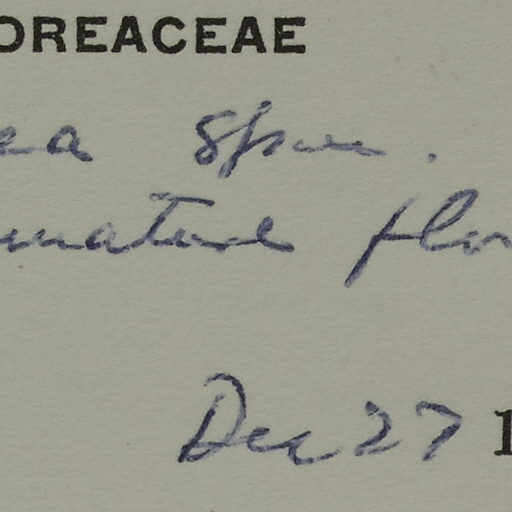 OREACEAE
ea Spru.
mature flo
Dec 27 1